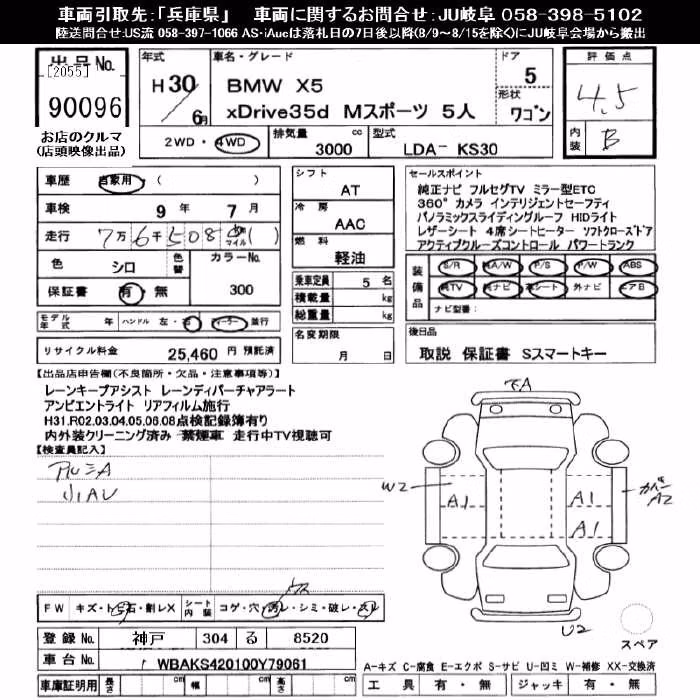 車両引取先:「兵庫県」 車両に関するお問合せ:JU岐阜 058-398-5102
陸送問合せ:US流 058-397-1066 AS・iAucは落札日の7日後以降(8/9～8/15を除く)にJU岐阜会場から搬出
出品No.
[2055]
90096
お店のクルマ
(店頭映像出品)
年式
H30/6月
車名・グレード
BMW X5
xDrive35d Mスポーツ 5人
ドア
5
形状
ワゴン
評価点
4.5
内装
B
2WD・4WD
排気量
3000 cc
型式
LDA- KS30
車歴 自家用・( )
車検 9年 7月
走行 7万6千508
マイル
( )
色 シロ
色替
カラーNo.
300
保証書 有・無
モデル年式 年 ハンドル 左・右 ディーラー 並行
リサイクル料金 25,460 円 預託済
シフト
AT
冷房
AAC
燃料
軽油
乗車定員 5 名
積載量 kg
総重量 kg
名変期限
月 日
セールスポイント
純正ナビ フルセグTV ミラー型ETC
360° カメラ インテリジェントセーフティ
パノラミックスライディングルーフ HIDライト
レザーシート 4席シートヒーター ソフトクローズドア
アクティブクルーズコントロール パワートランク
装備品
S/R AA/W P/S P/W ABS
純TV 純ナビ 革シート 外ナビ エアB
ナビ型番( )
後日品
取説 保証書 Sスマートキー
【出品店申告欄(不良箇所・欠品・注意事項等)】
レーンキープアシスト レーンディパーチャアラート
アンビエントライト リアフィルム施行
H31.R02.03.04.05.06.08点検記録簿有り
内外装クリーニング済み 禁煙車 走行中TV視聴可
【検査員記入】
小AU
下A
W2
A1
A1
A1
カバー
A2
U2
スペア
FW キズ・トビ石・割レX
シート内装
コゲ・穴・汚レ・シミ・破レ・スレ
登録No. 神戸 304 る 8520
車台No. WBAKS420100Y79061
車庫証明用 長さ cm 幅 cm 高さ cm
A-キズ C-腐食 E-エクボ S-サビ U-凹ミ W-補修 XX-交換済
工具 有・無 ジャッキ 有・無